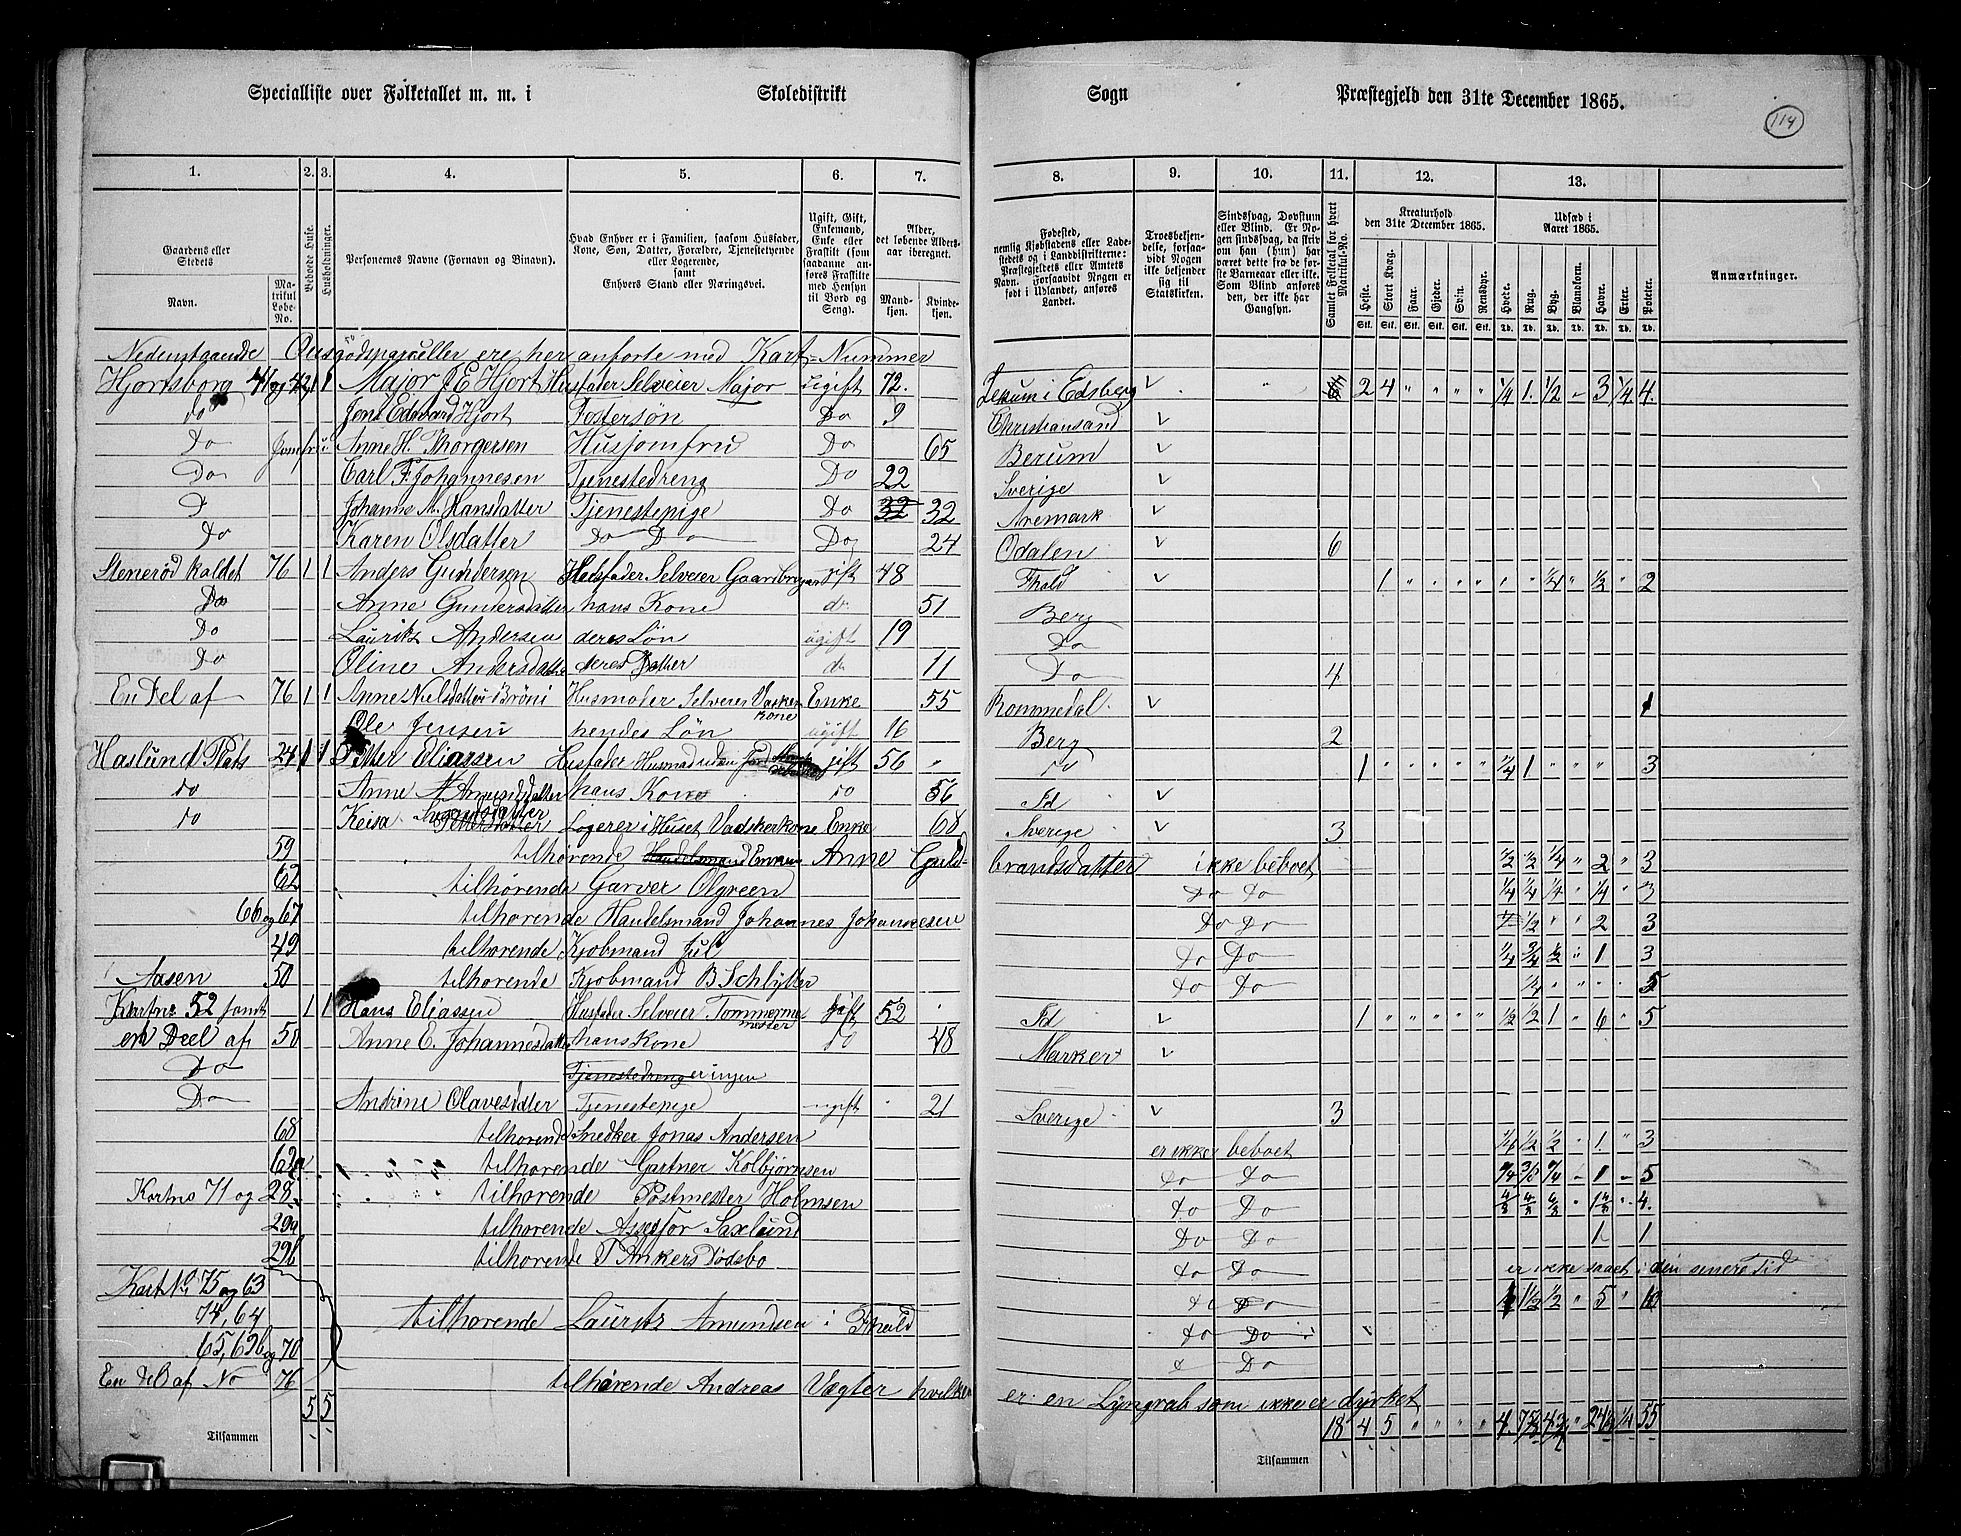 Specialliste over Folketallet m. m. i Skoledistrikt Sogn Præstegjeld den 31te December 1865.
114
1. 2. 3. 4. 5. 6. 7. 8. 9. 10. 11. 12. 13.
Gaardens eller Stedets
Navn.
Matrikul Løbe-No.
Beboede Huse.
Husholdninger.
Personernes Navne (Fornavn og Binavn).
Hvad Enhver er i Familien, saasom Husfader, Kone, Søn, Datter, Forældre, Tjenestetyende eller Logerende, samt Enhvers Stand eller Næringsvei.
Ugift, Gift, Enkemand, Enke eller Fraskilt (som saadanne anføres Fraskilte med Hensyn til Bord og Seng).
Alder, det løbende Alders-aar iberegnet.
Mand-kjøn. Kvinde-kjøn.
Fødested, nemlig Kjøbstadens eller Ladestedets og i Landdistrikterne: Præstegjeldets eller Amtets Navn. Forsaavidt Nogen er født i Udlandet, anføres Landet.
Troesbekjendelse, forsaavidt Nogen ikke bekjender sig til Statskirken.
Sindssvag, Døvstum eller Blind. Er Nogen sindssvag, da skriv om han (hun) har været dette fra de første Barneaar eller ikke. Som Blind anføres den, der ikke har Gangsyn.
Samlet Folketal for hvert Matrikul-No.
Kreaturhold den 31te December 1865.
Heste. Stort Kvæg. Faar. Gjeder. Svin. Rensdyr.
Udsæd i Aaret 1865.
Hvede. Rug. Byg. Blandkorn. Havre. Erter. Poteter.
Anmærkninger.
Nedenstaaende ere her anførte med Kart-Nummer
Hjortsborg 41 og 42 1 1 Major J E Hjort Husfader Selveier Major ugift 72. i Edsberg v 2 4 " " " " 1/4 1. 1/2 - 3 1/4 4.
do Jens Edevard Hjort Fostersøn Do 9 Christiansand v
Do Jomfru Anne H. Thorgersen Husjomfru Do 65 Berum v
Do Carl F Johannesen Tjenestedreng Do 22 Sverige v
D Johanne M. Hansdatter Tjenestepige Do 32 32 Aremark v
Do Karen Olsdatter Do Do Do 24 Odalen v 6
Stenerød kaldet 76 1 1 Anders Gundersen Husfader Selveier Gaardbruger gift 48 Fhald v 1 " " " " " 1/4 " 1/2 " 2
Do Anne Gundersdatter hans Kone do 51 Berg
Do Lauritz Andersen deres Søn ugift 19 Do
Do Oline Andersdatter deres Datter do 11 Do 4
En Del af 76 1 1 Anne Nielsdatter Brøni Husmoder Selveier Vaskerkone Enke 55 Rommedal v 1
Ole Jensen hendes Søn ugift 16 Berg 2
Haslund Plads 24 1 1 Petter Eliassen Husfader Husmand uden Jord gift 56 " do 1 " " " " " 1/4 1 " " " 3
do Anne A Amundsdatter hans Kone do 56 Id v
do Keisa Petersdatter Logerer i Huset Vadskerkone Enke 68 Sverige v 3
59 tilhørende Handelsmand Enken Anne Guldbrandsdatter ikke beboet 1/2 1/2 1/4 " 2 " 3
62 tilhørende Garver Olgreen Do Do 1/4 1/4 1/4 " 1/4 " 3
66 og 67 tilhørende Handelsmand Johannes Johannesen Do Do 1/2 " " 2 3
49 tilhørende Kjøbmand Jul Do Do 1/4 3/4 1/2 " 1 3
Aasen 50 tilhørende Kjøbmand B Schlytter Do Do 1/4 " " . 5
Kartno 52 samt 1 1 Hans Eliassen Husfader Selveier Tømmermester gift 52 Id v 1 " " " " " 1/2 1/2 1 " 6 " 5
en Deel af 50 Anne E. Johannesdatter hans Kone do 48 Marker v
Do Tjenestedreng er ingen
Do Andrine Olavesdatter Tjenestepige ugift 21 Sverige v 3
68 tilhørende Snedker Jonas Andersen er ikke beboet 1/4 1/2 1/2 " 1 " 3
69a tilhørende Gartner Kolbjørnsen Do Do 1 - 5
Kartno 71 og 28 tilhørende Postmester Holmsen do Do 4.
29a tilhørende Assessor Saxlund Do Do 1 1
29b tilhørende P Ankers Dødsbo do Do er ikke saaet i den senere Tid
Kart No 75 og 63 do Do 1 1/2 1/2 " 5 " 10
74, 64 tilhørende Lauritz Amundsen i Fhald do Do
65, 69b og 70 Do
En Del af No 76 tilhørende Andreas Vægter hvilken er en Lyngrab som ikke er dyrket
5 5 18 4 5 " " " " 4. " 1/4 55
Tilsammen Tilsammen